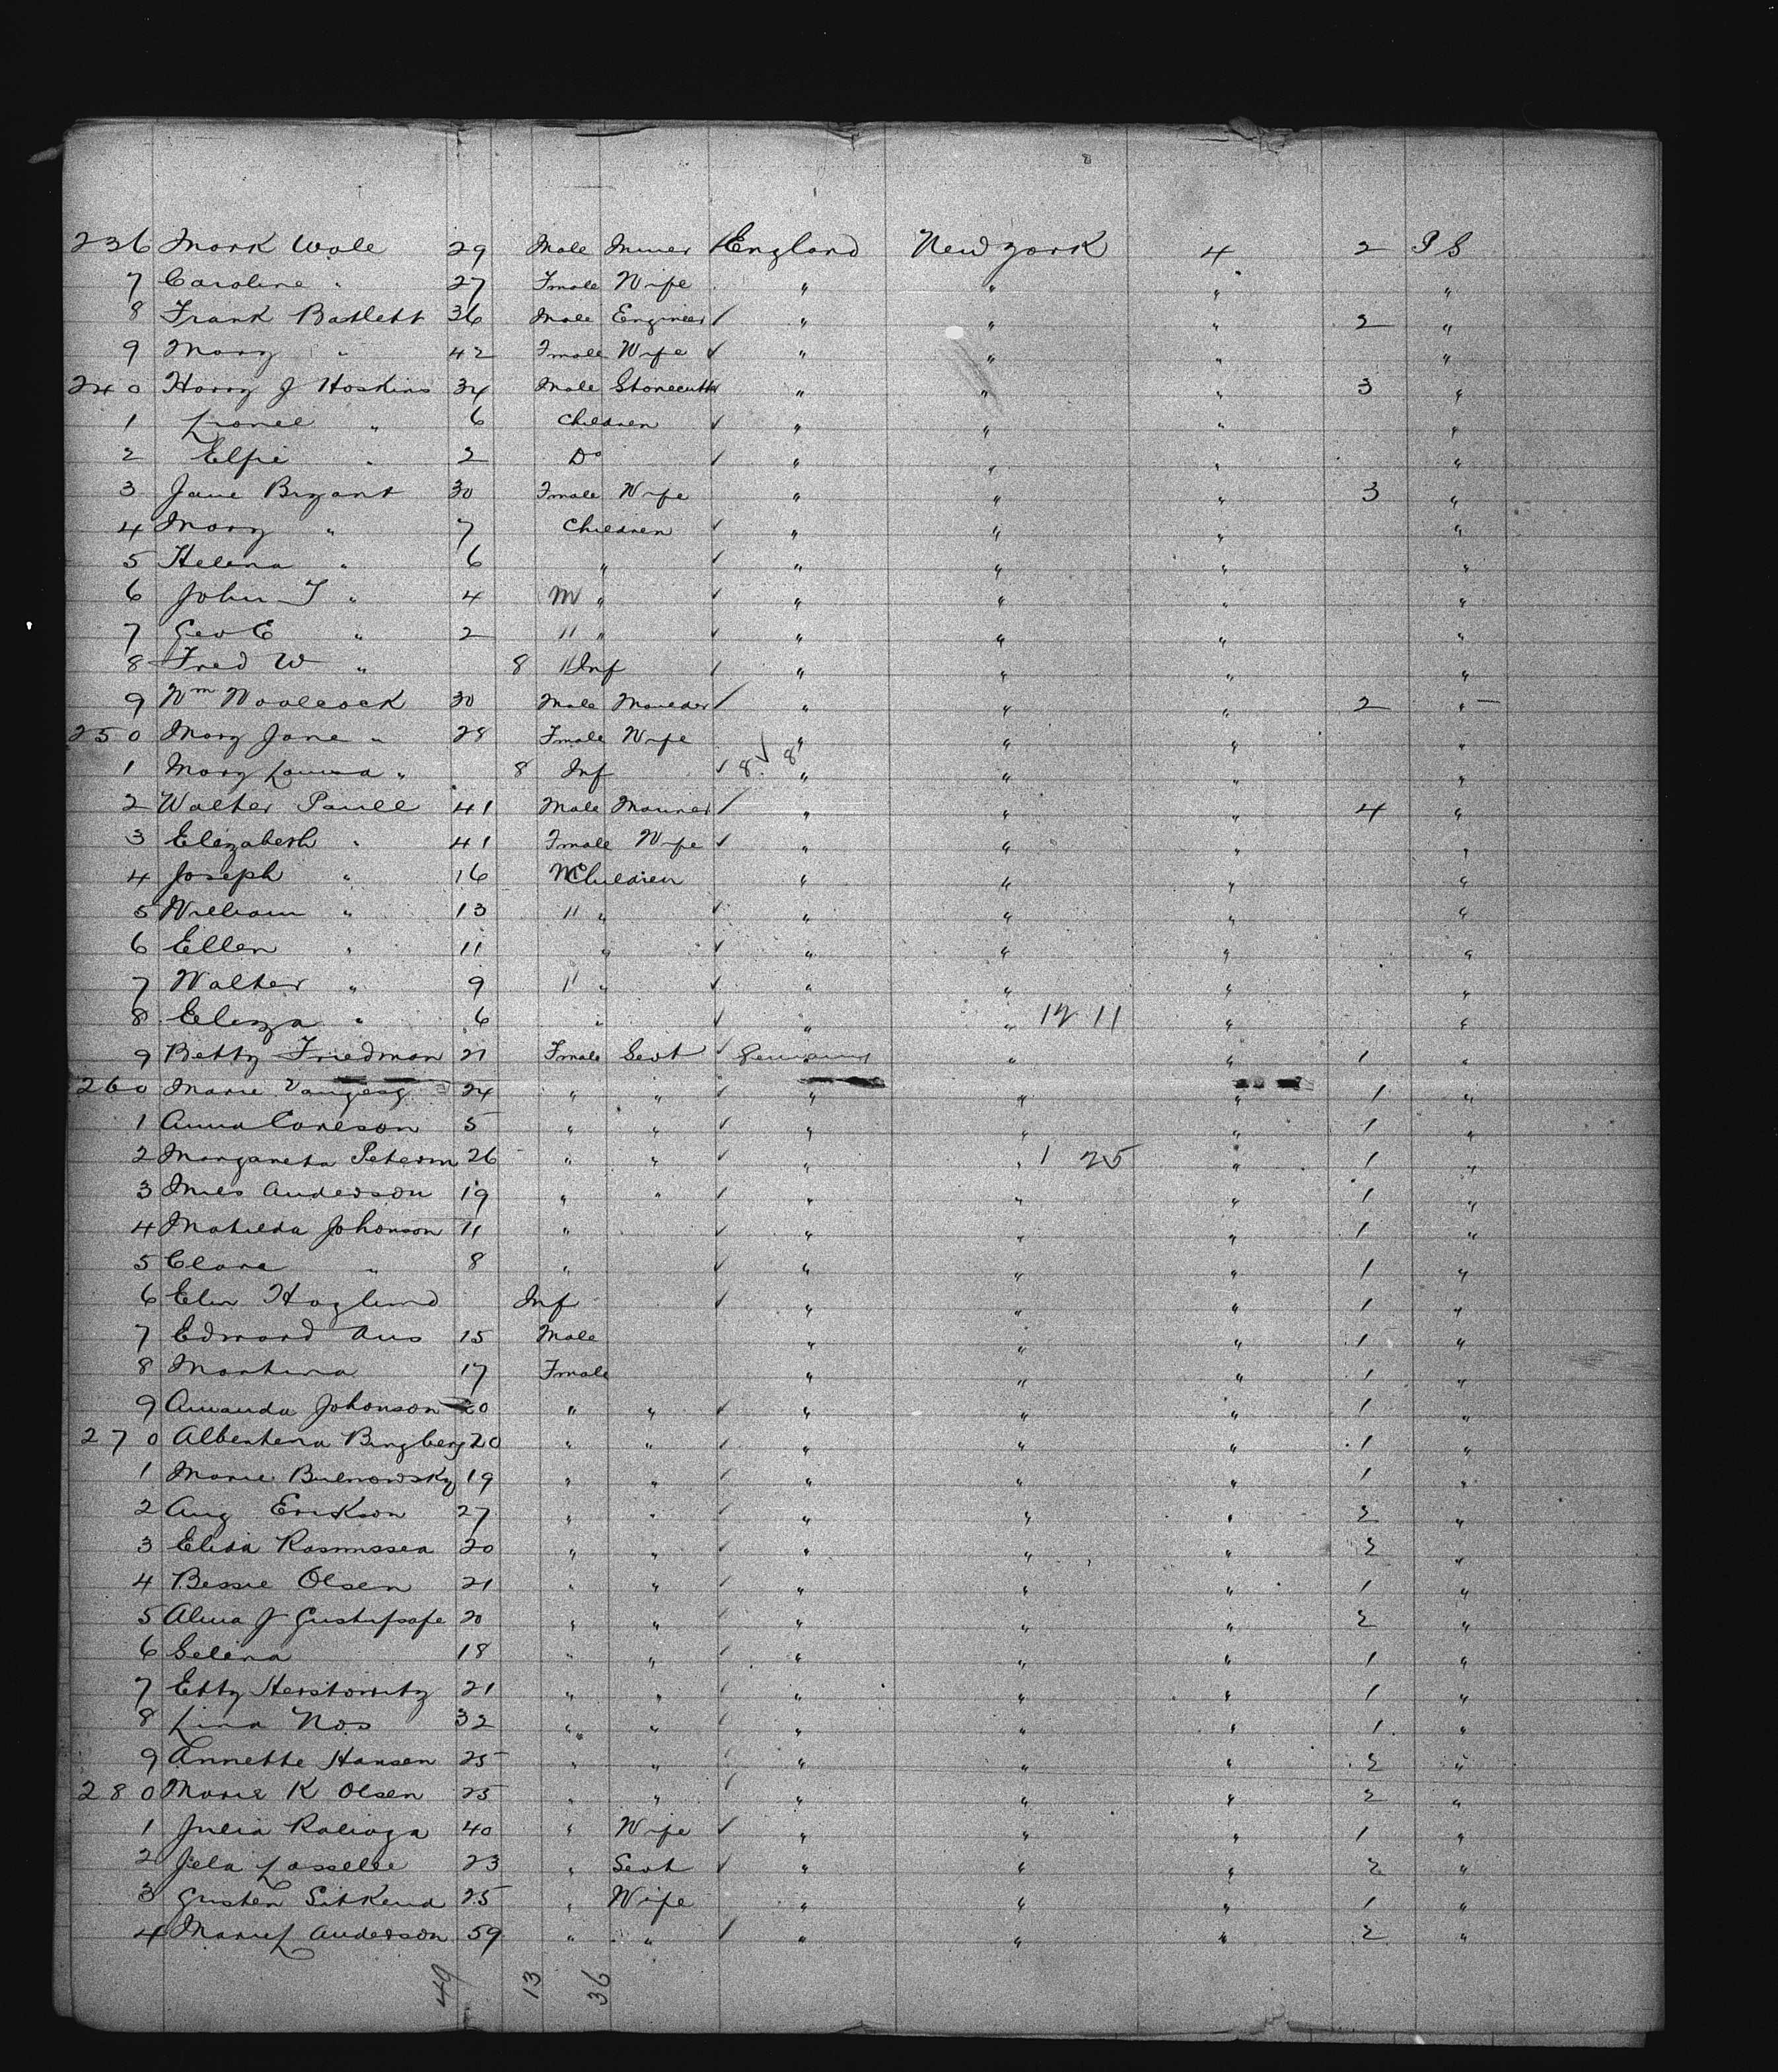 236 Mark Wale 29 Male Miner England New York 4 2 P S
7 Caroline " 27 Fmale Wife " " " "
8 Frank Batlett 36 Male Engineer " " " 2 "
9 Mary " 42 Fmale Wife " " " "
240 Harry J Hoskins 34 Male Stonecutt " " " 3 "
1 Lionel " 6 Children " " " "
2 Elfie " 2 Do " " " "
3 Jane Bryant 30 Fmale Wife " " " 3 "
4 Mary " 7 Children " " " "
5 Helena " 6 " " " " "
6 John T " 4 M " " " " "
7 Geo E " 2 " " " " " "
8 Fred W " 8 " Inf " " " "
9 Wm Woolcock 30 Male Moulder " " " 2 " –
250 Mary Jane " 28 Fmale Wife " " " "
1 Mary Louisa " 8 Inf 8 8 " " " "
2 Walter Paull 41 Male " " " 4 "
3 Elizabeth " 41 Fmale Wife " " " "
4 Joseph " 16 M Children " " " "
5 William " 13 " " " " " "
6 Ellen " 11 " " " " "
7 Walter " 9 " " " " " "
8 Eliza " 6 " " " 12 11 " "
9 Betty Friedman 21 Fmale Sevt Germany " " 1 "
260 Marie 24 " " " " " 1 "
1 Anna Careson 5 " " " " " 1 "
2 Margareta Peterm 26 " " " " 1 25 " 1 "
3 Anderson 19 " " " " " 1 "
4 Matilda Johonson 11 " " " " 1 "
5 Clara " 8 " " " " 1 "
6 Elin Hoglund Inf " " " 1 "
7 Edward Aus 15 Male " " " 1 "
8 Martina 17 Fmale " " " 1 "
9 Amanda Johonson 20 " " " " " 1 "
270 Albertena Bingberg 20 " " " " " 1 "
1 Marie Bulnowsky 19 " " " " " 1 "
2 Aug Erikson 27 " " " " " 2 "
3 Elida Rasmussea 20 " " " " " 2 "
4 Bessie Olsen 21 " " " " " 1 "
5 Alma J Gustafsafe 20 " " " " " 2 "
6 Selina 18 " " " " " 1 "
7 Etty Herstowitz 21 " " " " " 1 "
8 Lina Nos 32 " " " " " 1 "
9 Annette Hansen 25 " " " " " 2 "
280 Marie K Olsen 25 " " " " " 2 "
1 Julia Kalioga 40 " Wife " " " 1 "
2 Jela Lasselle 23 " Sevt " " " 2 "
3 Gusten Sitkena 25 " Wife " " " 1 "
4 Marie L Anderson 59 " " " " " 2 "
49 13 36